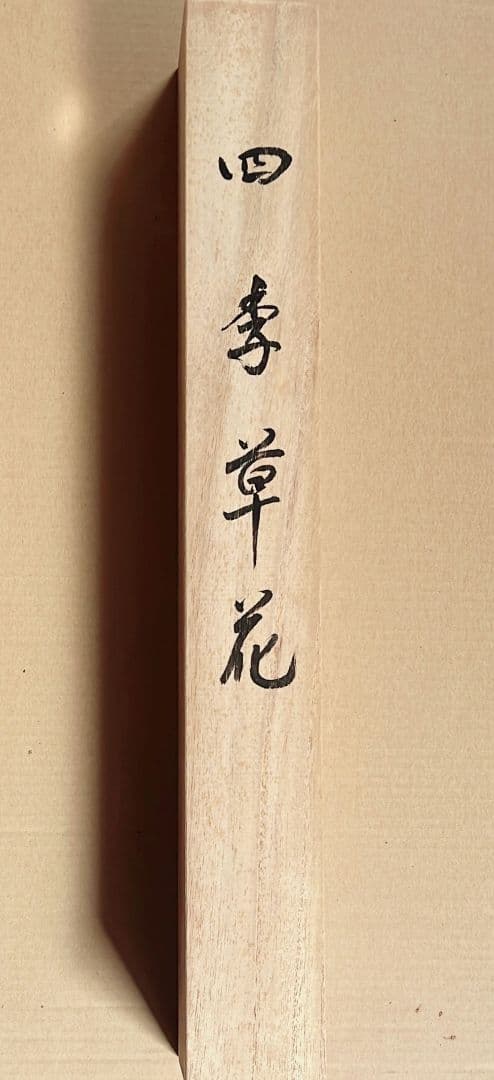 四季草花